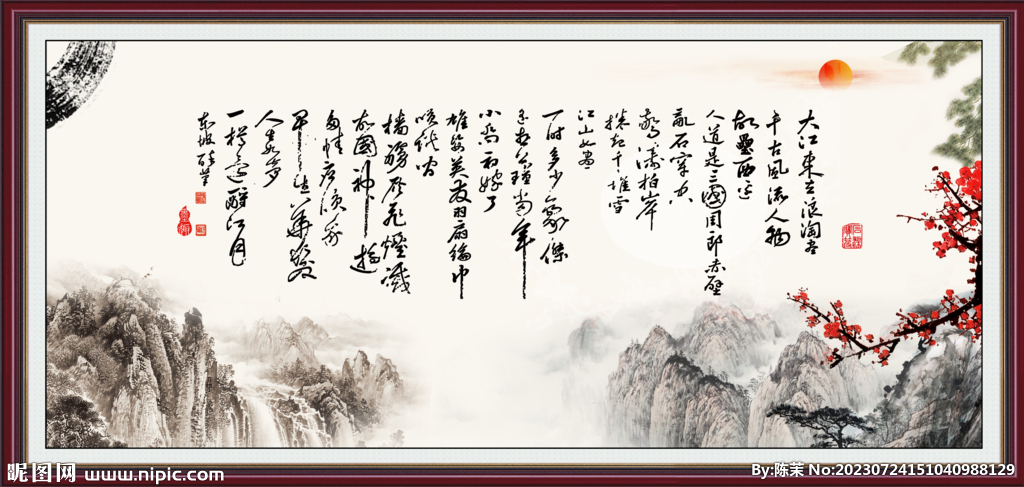 大江東去浪淘盡
千古風流人物
故壘西邊
人道是三國周郎赤壁
亂石穿空
驚濤拍岸
捲起千堆雪
江山如畫
一時多少豪傑
遙想公瑾當年
小喬初嫁了
雄姿英發羽扇綸巾
談笑間
檣艣灰飛煙滅
故國神遊
多情應笑我
早生華髮
人生如夢
一樽還酹江月
東坡醉筆
昵图网 www.nipic.com
By:陈茉 No:20230724151040988129